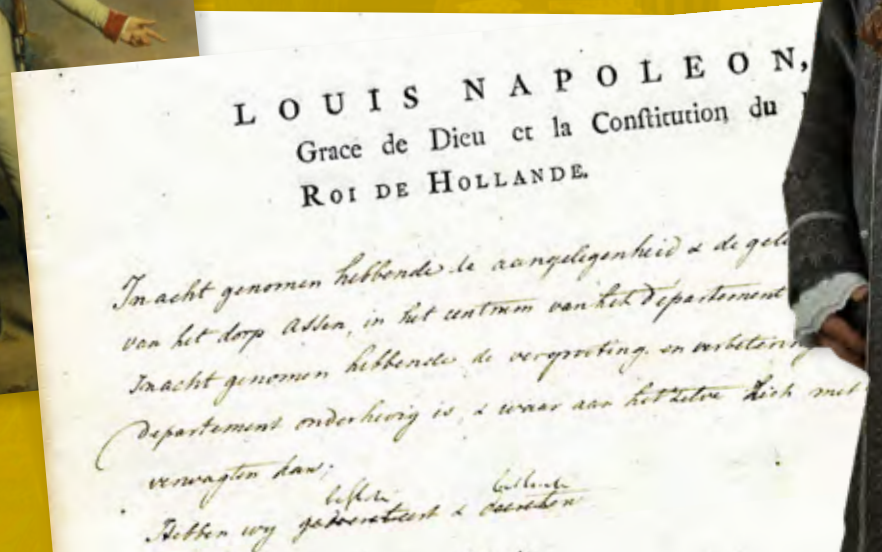 LOUIS NAPOLEON,
Grace de Dieu et la Conſtitution du
ROI DE HOLLANDE.
In acht genomen hebbende de aangelegenheid & de gele
van het dorp Assen, in het centrum van het Departement
In acht genomen hebbende de vergroting en verbetering
Departement onderhevig is, & waar aan het zelve zich met
verwagten kan;
Hebben wy gedecreteert & decreten